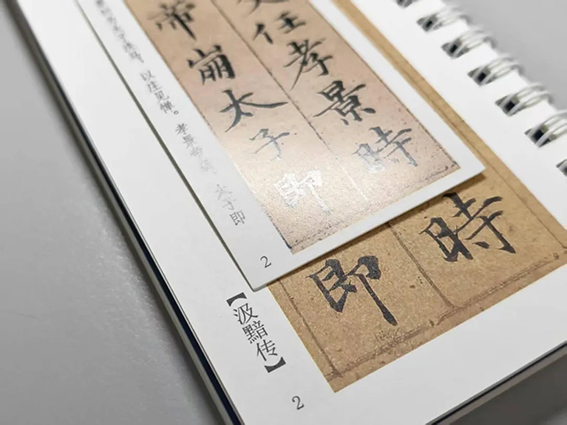 父任孝景時
帝崩太子即
太子洗马，以庄见惮。孝景帝崩，太子即
2
時
即
【汲黯传】
2